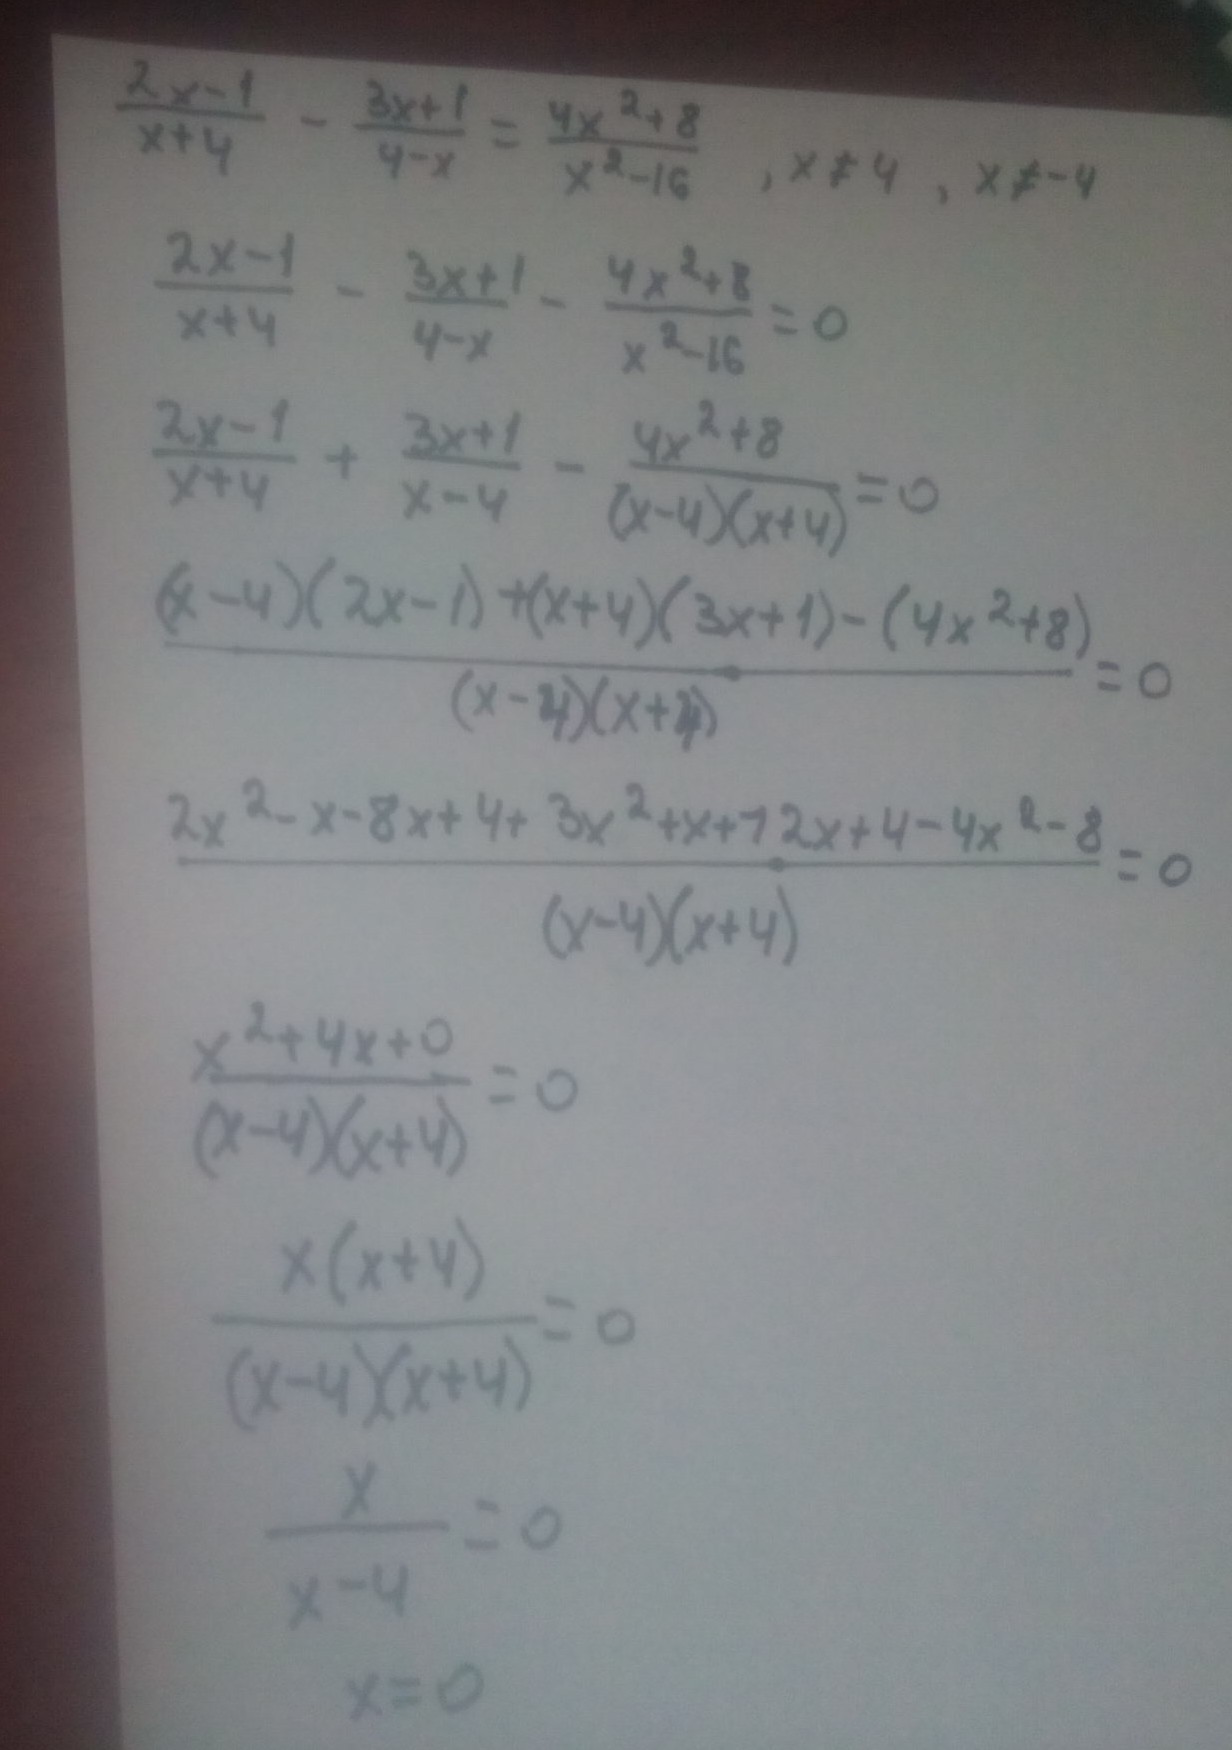 (2x-1)/(x+4) - (3x+1)/(4-x) = (4x²+8)/(x²-16) , x≠4 , x≠-4
(2x-1)/(x+4) - (3x+1)/(4-x) - (4x²+8)/(x²-16) = 0
(2x-1)/(x+4) + (3x+1)/(x-4) - (4x²+8)/((x-4)(x+4)) = 0
((x-4)(2x-1)+(x+4)(3x+1)-(4x²+8))/((x-4)(x+4)) = 0
(2x²-x-8x+4+3x²+x+12x+4-4x²-8)/((x-4)(x+4)) = 0
(x²+4x+0)/((x-4)(x+4)) = 0
(x(x+4))/((x-4)(x+4)) = 0
x/(x-4) = 0
x=0